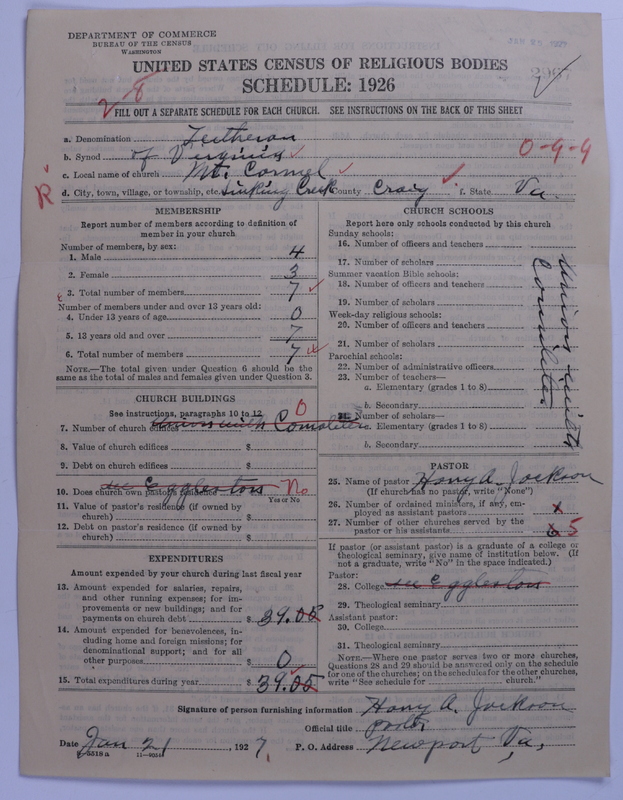 DEPARTMENT OF COMMERCE
BUREAU OF THE CENSUS
WASHINGTON
UNITED STATES CENSUS OF RELIGIOUS BODIES
SCHEDULE: 1926
FILL OUT A SEPARATE SCHEDULE FOR EACH CHURCH. SEE INSTRUCTIONS ON THE BACK OF THIS SHEET
a. Denomination Lutheran
b. Synod of Virginia
0-9-9
c. Local name of church Mt. Carmel
R
d. City, town, village, or township, etc. Sinking Creek County Craig f. State Va.
MEMBERSHIP
Report number of members according to definition of member in your church
Number of members, by sex:
1. Male 4
2. Female 3
3. Total number of members 7
Number of members under and over 13 years old:
4. Under 13 years of age 0
5. 13 years old and over 7
6. Total number of members 7
NOTE.—The total given under Question 6 should be
same as the total of males and females given under Question 3.
CHURCH BUILDINGS
See instructions, paragraphs 10 to 12
7. Number of church edifices Union with 0
8. Value of church edifices $
9. Debt on church edifices $
see Eggleston
10. Does church own pastor's residence No
Yes or No
11. Value of pastor's residence (if owned by
church) $
12. Debt on pastor's residence (if owned by
church) $
EXPENDITURES
Amount expended by your church during last fiscal year
13. Amount expended for salaries, repairs,
and other running expenses; for im-
provements or new buildings; and for
payments on church debt $ 39.05
14. Amount expended for benevolences, in-
cluding home and foreign missions; for
denominational support; and for all
other purposes $ 0
15. Total expenditures during year $ 39.05
CHURCH SCHOOLS
Report here only schools conducted by this church
Sunday schools:
16. Number of officers and teachers
17. Number of scholars
Summer vacation Bible schools:
18. Number of officers and teachers
19. Number of scholars
Week-day religious schools:
20. Number of officers and teachers
21. Number of scholars
Parochial schools:
22. Number of administrative officers
23. Number of teachers—
a. Elementary (grades 1 to 8)
b. Secondary
24. Number of scholars—
a. Elementary (grades 1 to 8)
b. Secondary
Union with
PASTOR
25. Name of pastor Harry A. Jackson
(If church has no pastor, write "None")
26. Number of ordained ministers, if any, em-
ployed as assistant pastors x
27. Number of other churches served by the
pastor or his assistants 6 5
If pastor (or assistant pastor) is a graduate of a college or
theological seminary, give name of institution below. (If
not a graduate, write "No" in the space indicated.)
Pastor:
28. College see Eggleston
29. Theological seminary
Assistant pastor:
30. College
31. Theological seminary
NOTE.—Where one pastor serves two or more churches,
Questions 28 and 29 should be answered only on the schedule
for one of the churches; on the schedules for the other churches,
write "See schedule for church."
Signature of person furnishing information Harry A. Jackson
Official title pastor
Date Jan 21, 1927. P. O. Address Newport Va,